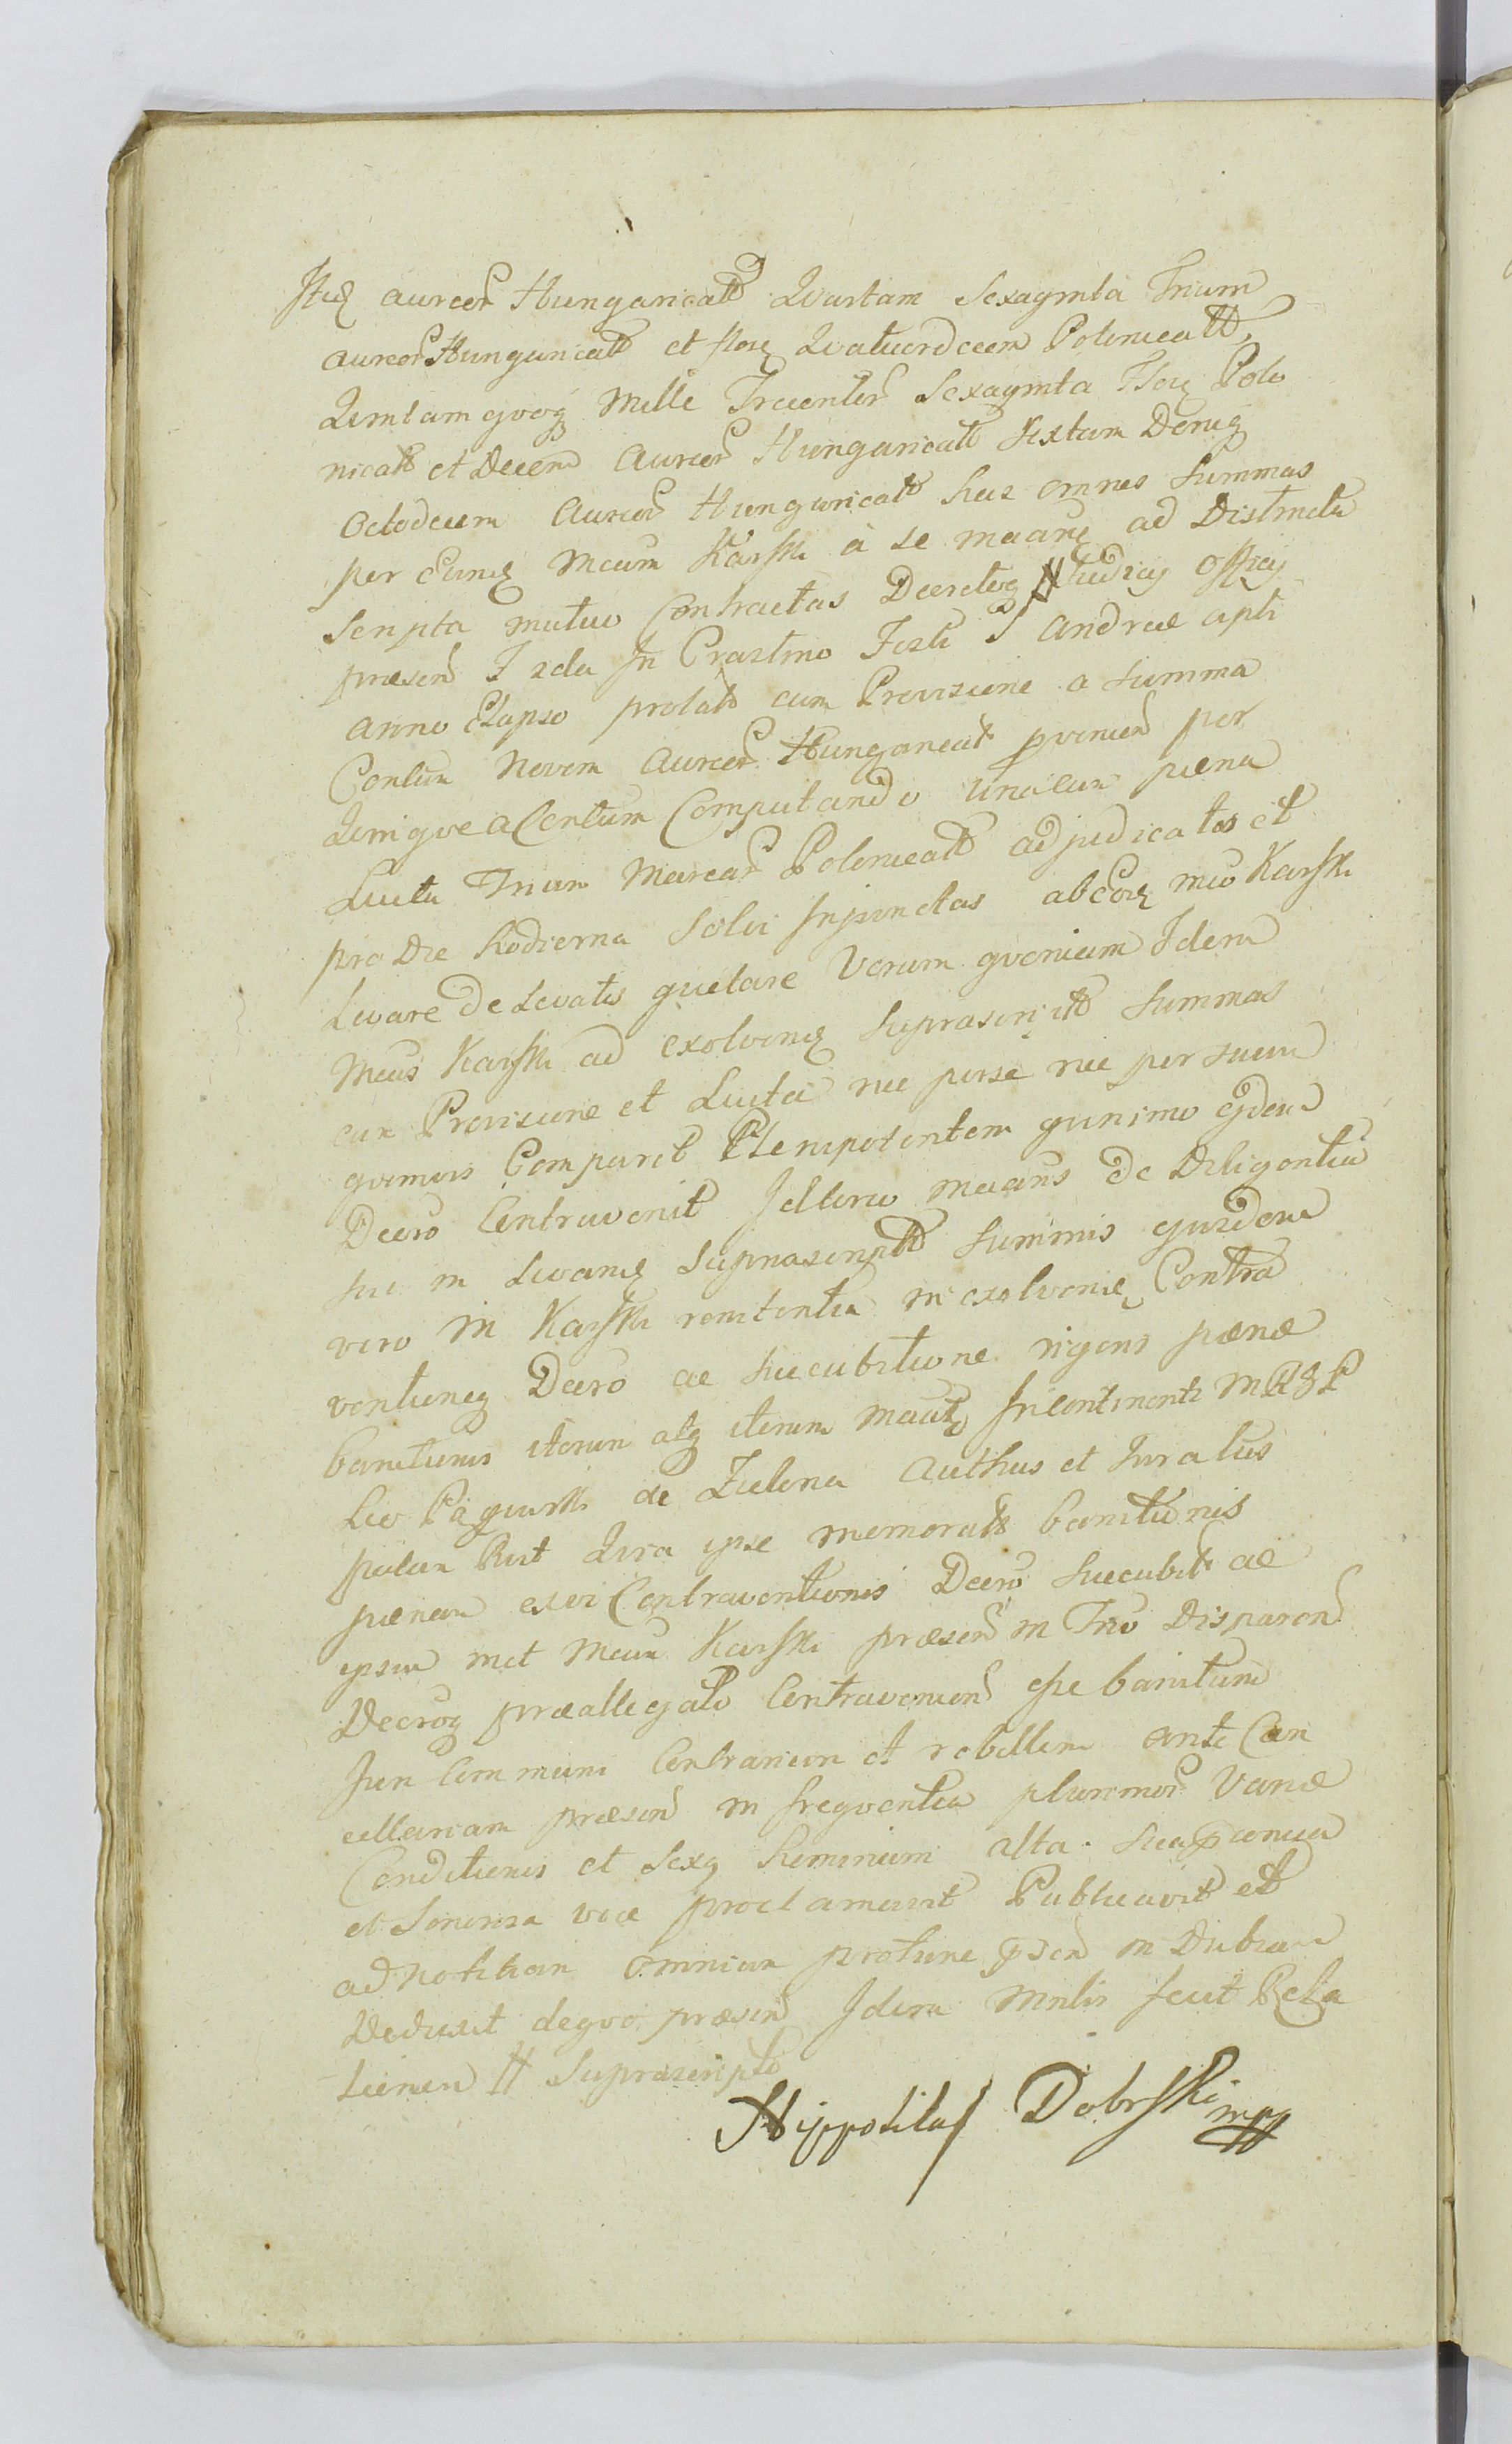 aureor Hungaricalt Quartam Sexaginta Trium
aureor Hungaricalt et flor Quatuordecem Polonicalt,
Quintam qvoq Mille Trecentor Sexaginta Flor Polo
nicalt et Decem Aureor Hungaricalt Sextam Deniq
Octodecem Aureor Hungaricalt has omnes Summas
per eund Mcum Karski à se ad Distincta
Scripta mutuo Contractas Decretoq Judicij Officij
præsen In Crastino Festi S Andreæ apli
Anno Elapso prolat cum Provisione a Summa
Centum Novem Aureor Hungaricalt per
Quinqve a Centum Computando unacum pæna
Luita Trium Marcar Polonicalt adjudicatas et
pro Die hodierna Solvi Injunctas ab Mco Karski
Levare de Levatis qvietare Verum qvoniam Idem
Mcus Karski ad exolvend suprascriptt Summas
cum Provisione et Luita nec per se nec per suum
qvemvis Comparet Plenipotentem qvinimo
Decro Contravenit de Diligentia
sui in Levand Suprascriptt Summis ejusdem
vero M Karski renitentia in exolvend Contra
ventioneq Decro ac Succubitione pænæ
banitionis iterum atq iterum Incontinenti
de Zielona Authus et Juratus
palam ipse memoratt banitionis
pænam Contraventionis Decro Succubit ac
ipsum met Mcum Karski præsen in Disparen
Decroq præallegato Contravenien esse banitum
Juri Communi Contrarium et rebellem ante Can
cellariam præsen in freqventia plurimor Variæ
Conditionis et Sexq hominum alta
et Sonorosa voce proclamavit Publicavit et
ad Notitiam omnium protunc in
Deduxit deqvo præsen Idem Mnlis fecit Rela
tionem Suprascripto
Hippolitus Dobrski mpp